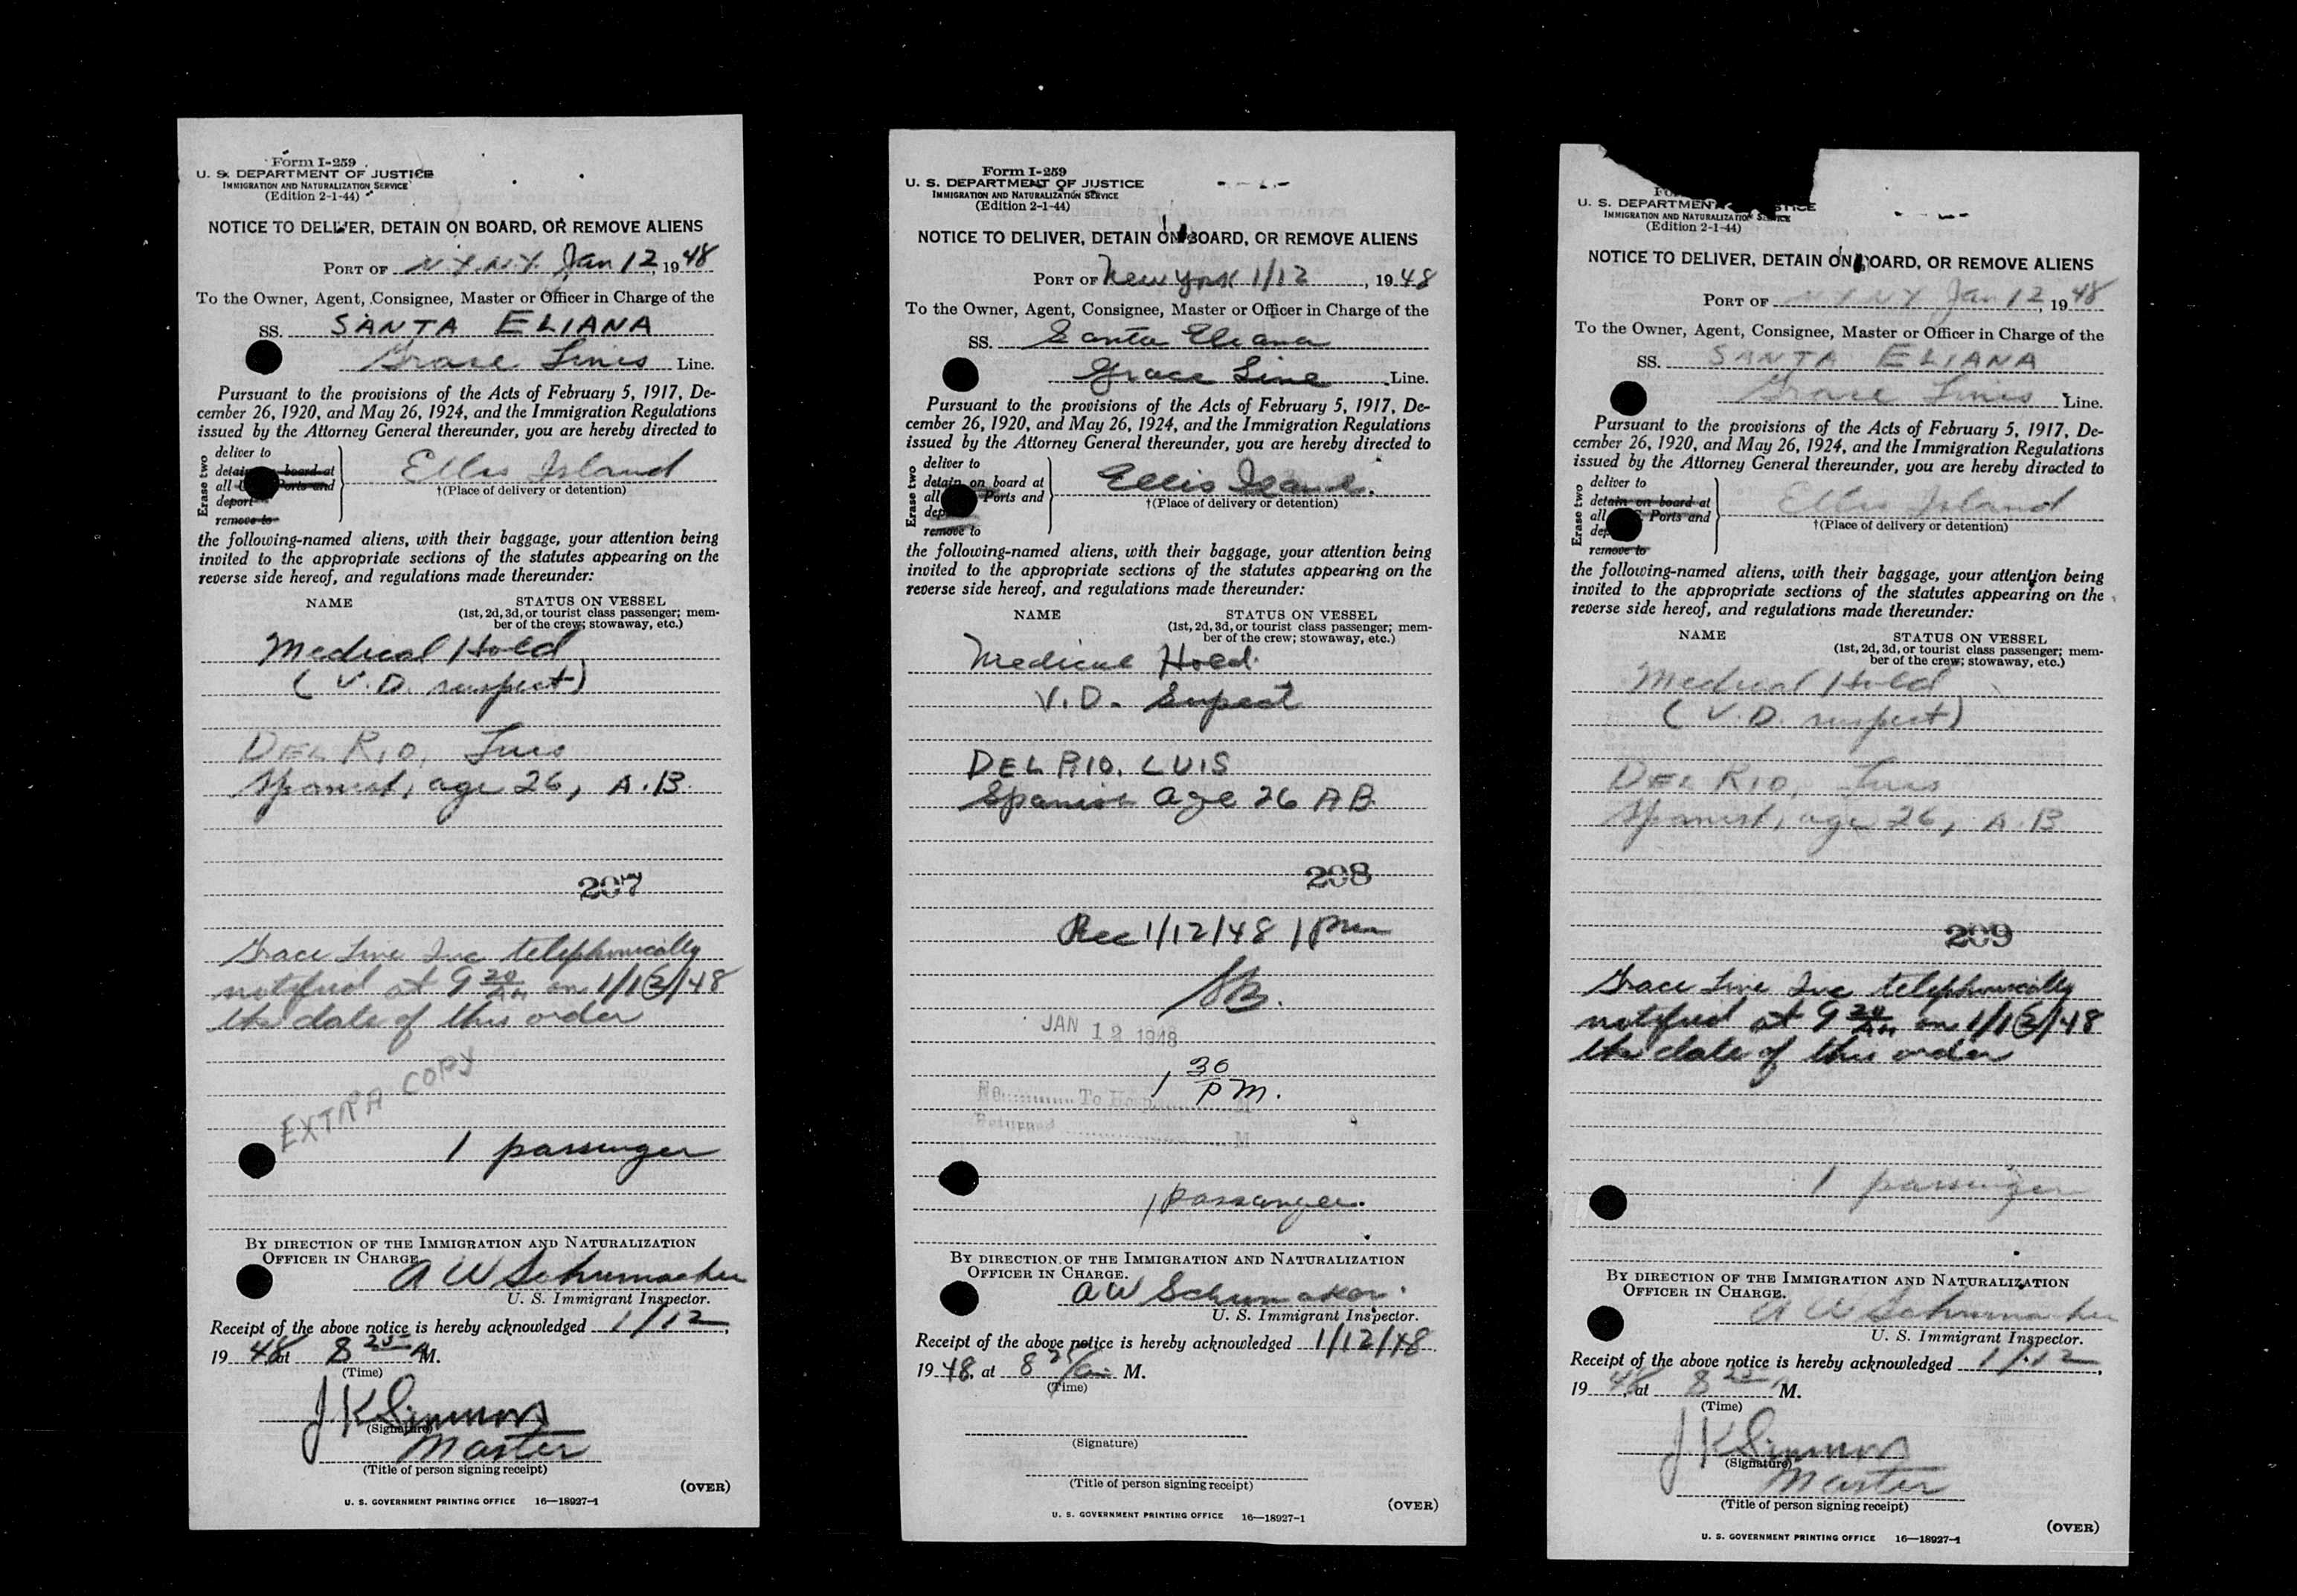 Form I-259
U. S. DEPARTMENT OF JUSTICE
IMMIGRATION AND NATURALIZATION SERVICE
(Edition 2-1-44)
NOTICE TO DELIVER, DETAIN ON BOARD, OR REMOVE ALIENS
PORT OF N.Y.N.Y. Jan 12, 1948
To the Owner, Agent, Consignee, Master or Officer in Charge of the
SS. SANTA ELIANA
Grace Lines Line.
Pursuant to the provisions of the Acts of February 5, 1917, De-
cember 26, 1920, and May 26, 1924, and the Immigration Regulations
issued by the Attorney General thereunder, you are hereby directed to
Erase two
deliver to
detain on board at
all U Ports and
deport
remove to
Ellis Island
†(Place of delivery or detention)
the following-named aliens, with their baggage, your attention being
invited to the appropriate sections of the statutes appearing on the
reverse side hereof, and regulations made thereunder:
NAME STATUS ON VESSEL
(1st, 2d, 3d, or tourist class passenger; mem-
ber of the crew; stowaway, etc.)
Medical Hold
(V.D. suspect)
DEL RIO, Luis
Spanish, age 26, A.B.
207
Grace Line Inc telephonically
notified at 9 20 AM on 1/12/48
the date of this order
EXTRA COPY
1 passenger
BY DIRECTION OF THE IMMIGRATION AND NATURALIZATION
OFFICER IN CHARGE.
A W Schumacher
U. S. Immigrant Inspector.
Receipt of the above notice is hereby acknowledged 1/12,
1948 at 8 25 A M.
(Time)
J. K Simmons
(Signature)
Master
(Title of person signing receipt)
(OVER)
U. S. GOVERNMENT PRINTING OFFICE 16—18927-1
Form I-259
U. S. DEPARTMENT OF JUSTICE
IMMIGRATION AND NATURALIZATION SERVICE
(Edition 2-1-44)
NOTICE TO DELIVER, DETAIN ON BOARD, OR REMOVE ALIENS
PORT OF New York 1/12, 1948
To the Owner, Agent, Consignee, Master or Officer in Charge of the
SS. Santa Eliana
Grace Line Line.
Pursuant to the provisions of the Acts of February 5, 1917, De-
cember 26, 1920, and May 26, 1924, and the Immigration Regulations
issued by the Attorney General thereunder, you are hereby directed to
Erase two
deliver to
detain on board at
all Ports and
dep
remove to
Ellis Island.
†(Place of delivery or detention)
the following-named aliens, with their baggage, your attention being
invited to the appropriate sections of the statutes appearing on the
reverse side hereof, and regulations made thereunder:
NAME STATUS ON VESSEL
(1st, 2d, 3d, or tourist class passenger; mem-
ber of the crew; stowaway, etc.)
Medical Hold.
V.D. Supect
DEL RIO, LUIS
Spanish age 26 AB
208
Rec 1/12/48 1 pm
JAN 12 1948
1 30 PM.
To Hosp M
Returned M
1 passanger.
BY DIRECTION OF THE IMMIGRATION AND NATURALIZATION
OFFICER IN CHARGE.
AW Schumaker.
U. S. Immigrant Inspector.
Receipt of the above notice is hereby acknowledged 1/12/48.
1948. at 8 25/am M.
(Time)
(Signature)
(Title of person signing receipt)
(OVER)
U. S. GOVERNMENT PRINTING OFFICE 16—18927-1
Fo
U. S. DEPARTMEN STICE
IMMIGRATION AND NATURALIZATION SERVICE
(Edition 2-1-44)
NOTICE TO DELIVER, DETAIN ON BOARD, OR REMOVE ALIENS
PORT OF N.Y.N.Y. Jan 12, 1948
To the Owner, Agent, Consignee, Master or Officer in Charge of the
SS. SANTA ELIANA
Grace Lines Line.
Pursuant to the provisions of the Acts of February 5, 1917, De-
cember 26, 1920, and May 26, 1924, and the Immigration Regulations
issued by the Attorney General thereunder, you are hereby directed to
Erase two
deliver to
detain on board at
all Ports and
dep
remove to
Ellis Island
†(Place of delivery or detention)
the following-named aliens, with their baggage, your attention being
invited to the appropriate sections of the statutes appearing on the
reverse side hereof, and regulations made thereunder:
NAME STATUS ON VESSEL
(1st, 2d, 3d, or tourist class passenger; mem-
ber of the crew; stowaway, etc.)
Medical Hold
(V.D. suspect)
DEL RIO, Luis
Spanish, age 26, A.B
209
Grace Line Inc telephonically
notified at 9 20 AM on 1/12/48
the date of this order
1 passenger
BY DIRECTION OF THE IMMIGRATION AND NATURALIZATION
OFFICER IN CHARGE.
A W Schumacher
U. S. Immigrant Inspector.
Receipt of the above notice is hereby acknowledged 1/12,
1948, at 8 25 A M.
(Time)
J. K Simmons
(Signature)
Master
(Title of person signing receipt)
(OVER)
U. S. GOVERNMENT PRINTING OFFICE 16—18927-1